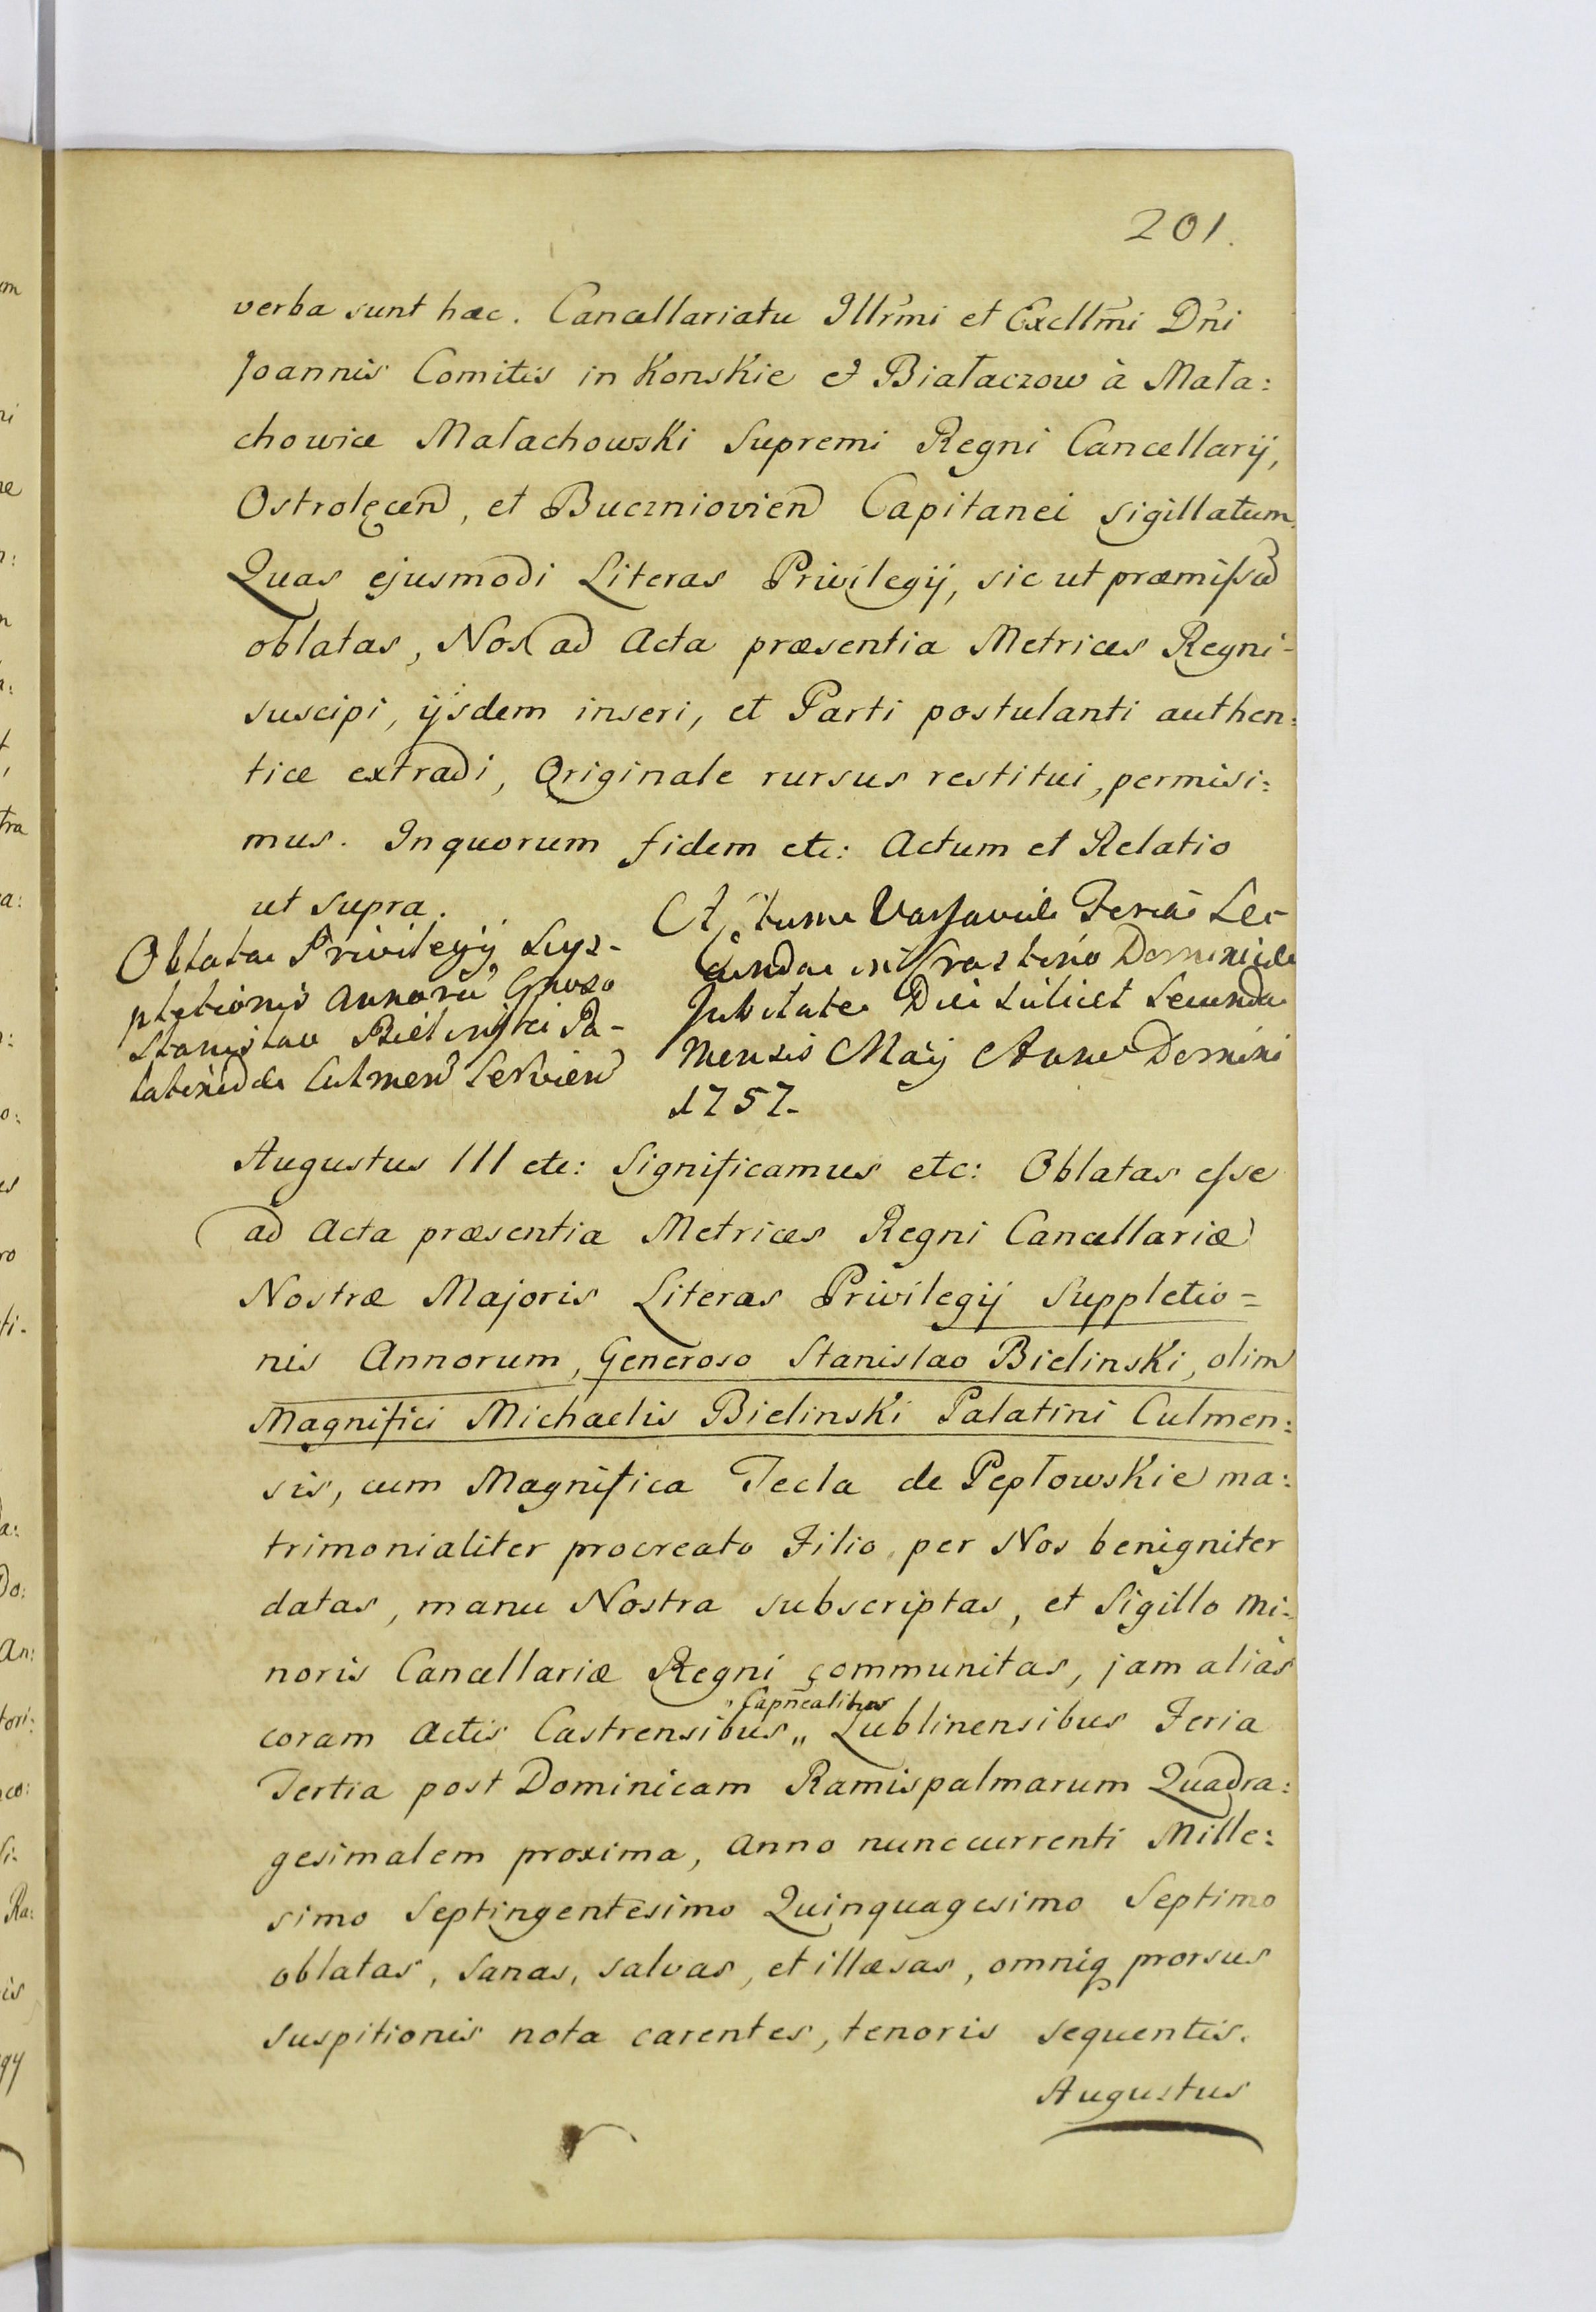 201.
verba sunt hæc. Cancellariatu Illr̃mi et Excllm̃i Dñi
Joannis Comitis in Konskie et Białaczow à Mała:
chowice Małachowski Supremi Regni Cancellarij,
Ostrolęcen, et Buczniovien Capitanei sigillatum.
Quas ejusmodi Literas Privilegij, sic ut præmissũ
oblatas, Nos ad Acta præsentia Metrices Regni
suscipi, ijsdem inseri, et Parti postulanti authen:
tice extradi, Originale rursus restitui, permisi:
mus. In quorum fidem etc: Actum et Relatio
ut supra.
Oblata Privilegij Sup-
pletionis annorũ Gnoso
Stanislao Bielinski Pa-
latinidæ Culmen Servien
Actum Varsaviæ Feria Se-
cunda in Crastino Dominicæ
Jubilate Die scilicet Secunda
Mensis Maij Anno Domini
1757.
Augustus III etc: Significamus etc: Oblatas esse
ad Acta præsentia Metrices Regni Cancellariæ
Nostræ Majoris Literas Privilegij Suppletio=
nis Annorum, Generoso Stanislao Bielinski, olim
Magnifici Michaelis Bielinski Palatini Culmen:
sis, cum Magnifica Tecla de Pepłowskie ma:
trimonialiter procreato Filio per Nos benigniter
datas, manu Nostra subscriptas, et Sigillo mi:
noris Cancellariæ Regni communitas, jam aliàs
„ Capn̄ealibus
coram Actis Castrensibus „ Lublinensibus Feria
Tertia post Dominicam Ramispalmarum Quadra:
gesimalem proxima, Anno nunc currenti Mille:
simo Septingentesimo Quinquagesimo Septimo
oblatas, sanas, salvas, et illæsas, omniq prorsus
suspitionis nota carentes, tenoris sequentis.
Augustus